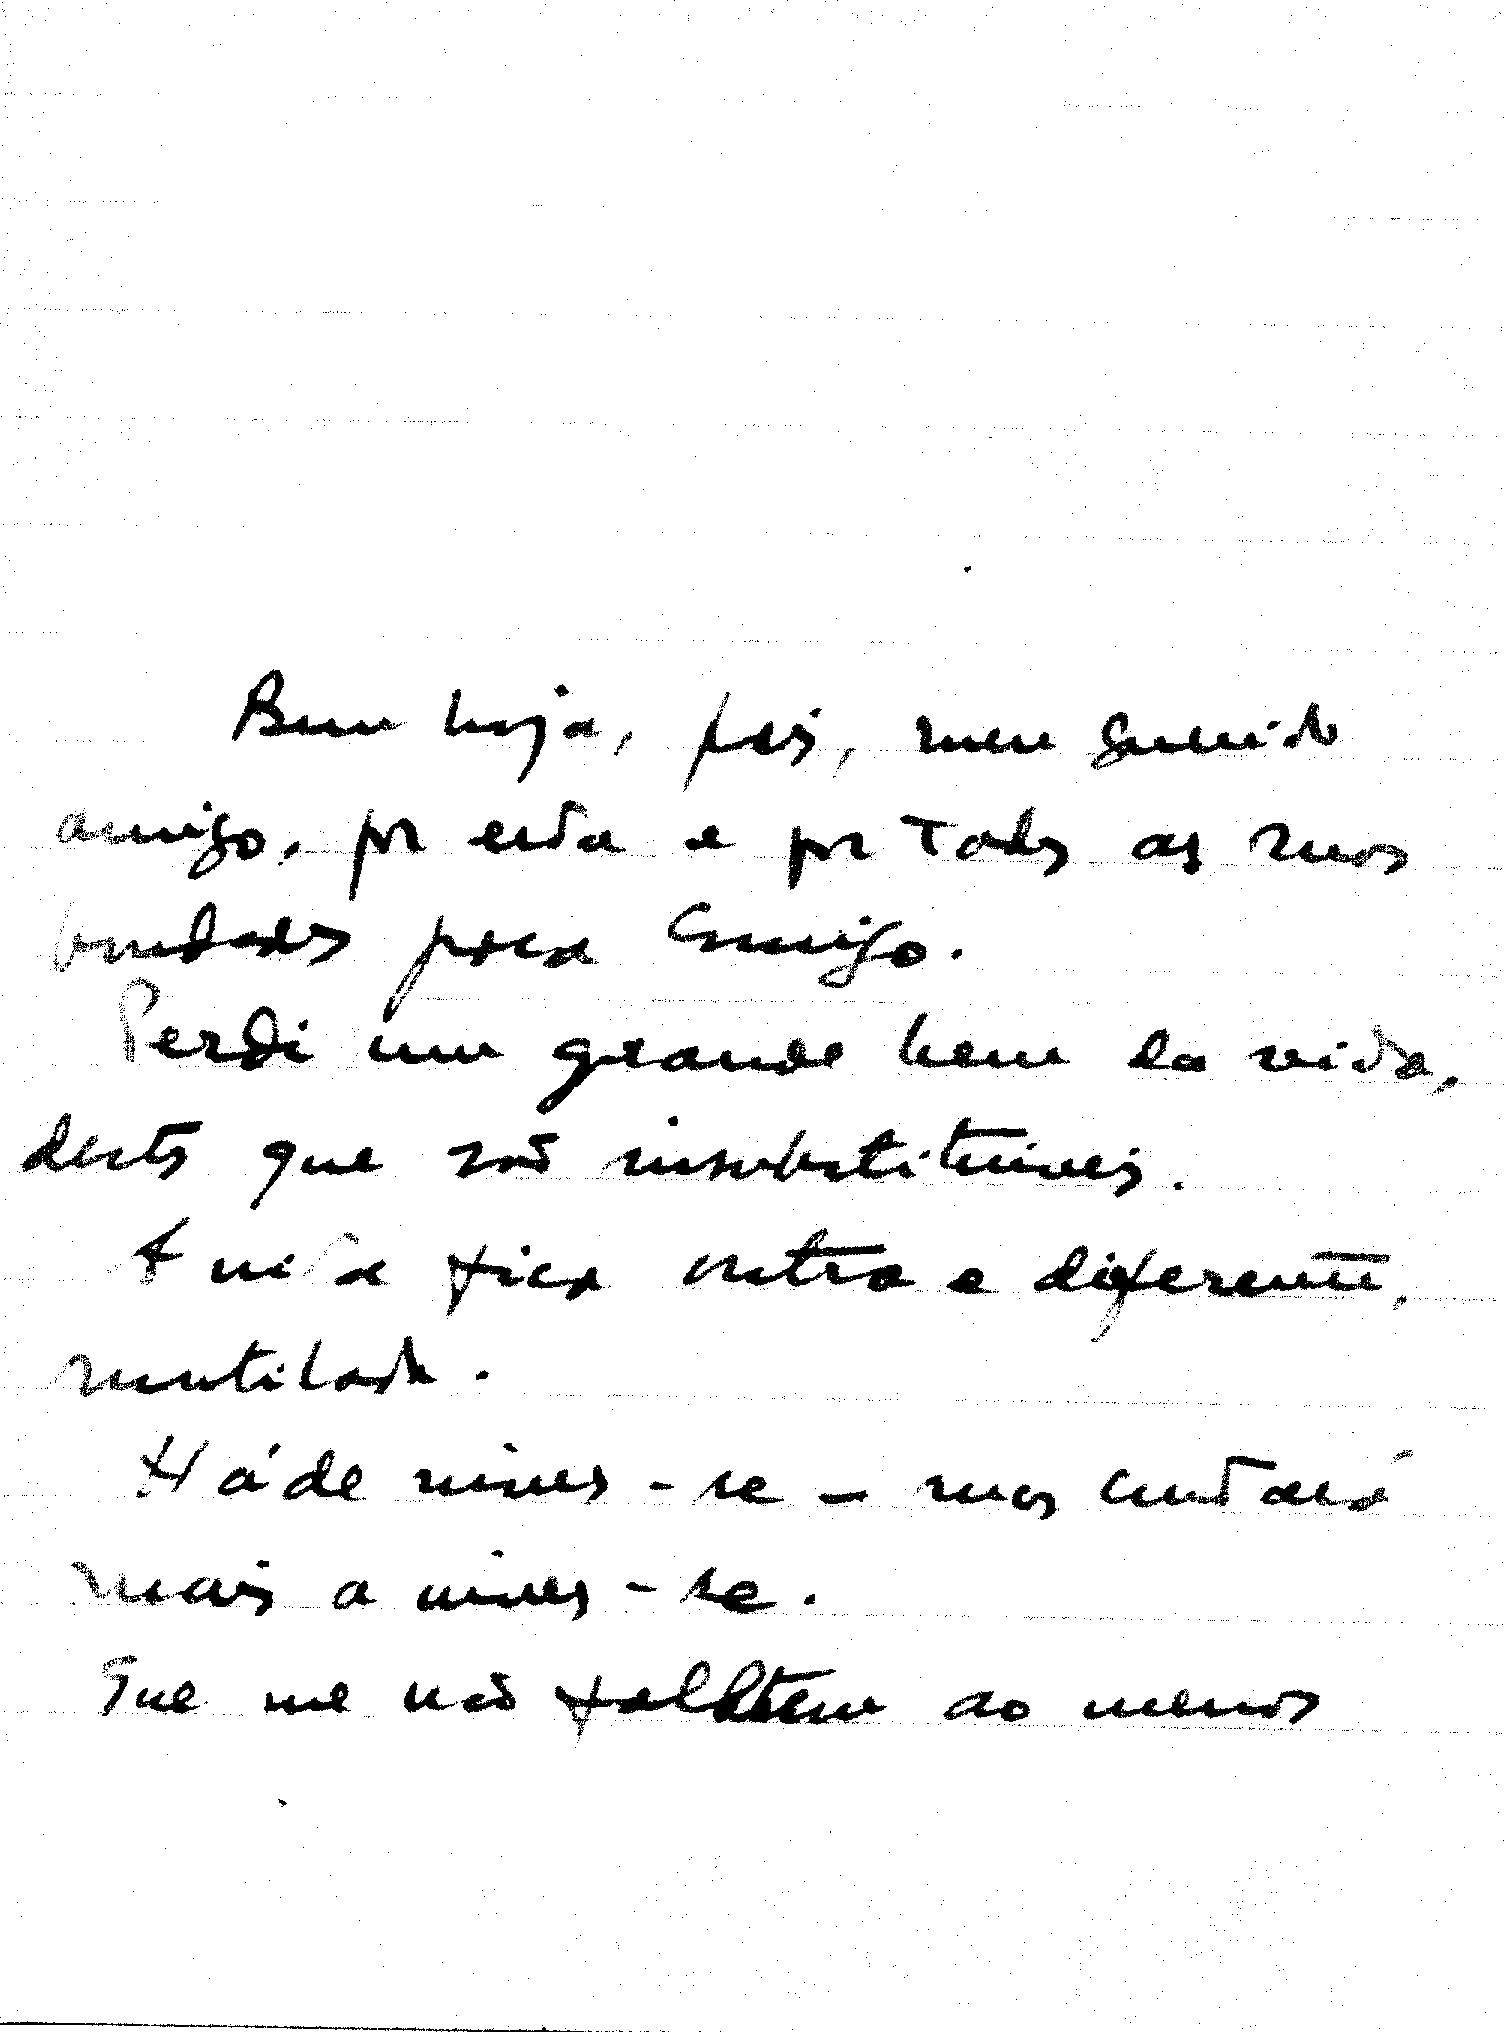 Bem haja, pois, meu querido
amigo, por esta e por todas as suas
bondades para comigo.
Perdi um grande bem da vida,
destes que são insubstituíveis.
A vida fica outra e diferente,
mutilada.
Há de viver-se – mas custará
mais a viver-se.
Que me não faltem ao menos